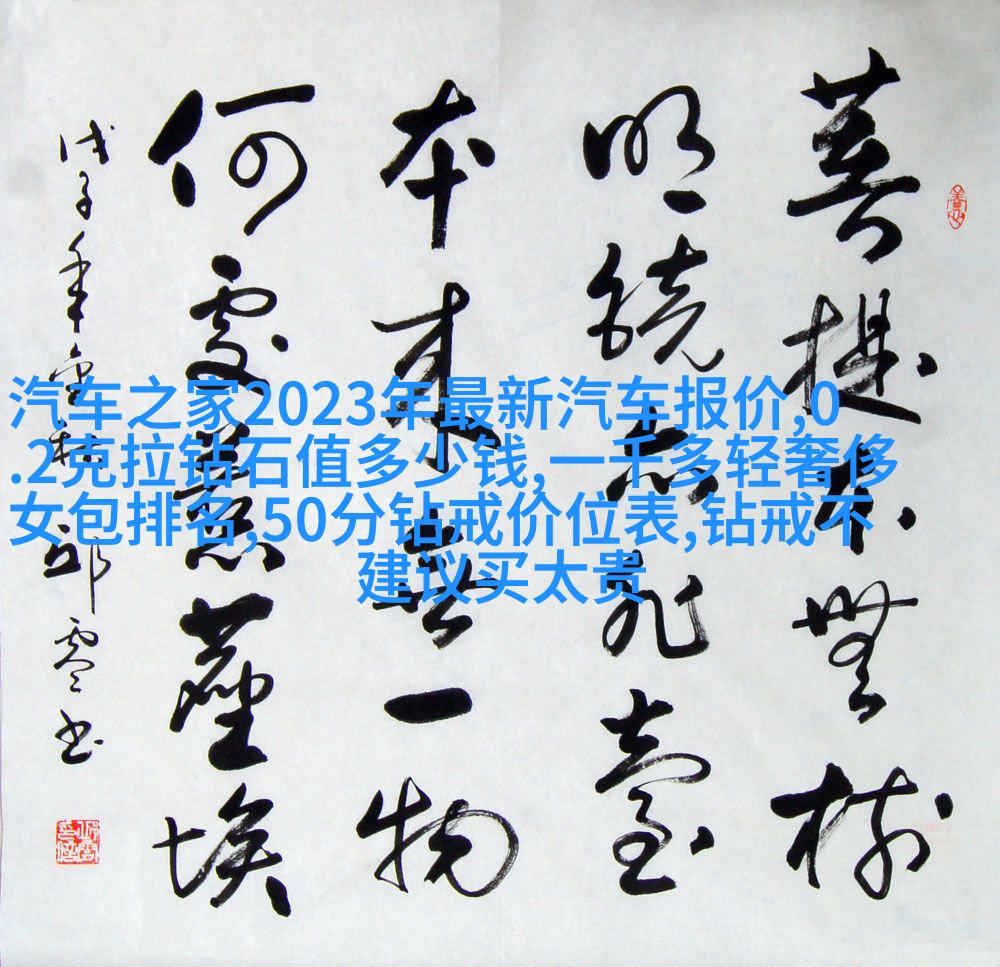 菩提本無樹
明镜亦非臺
本来無一物
何處惹塵埃
戊子年金秋 书
汽车之家2023年最新汽车报价,0
.2克拉钻石值多少钱,一千多轻奢侈
女包排名,50分钻戒价位表,钻戒不
建议买太贵